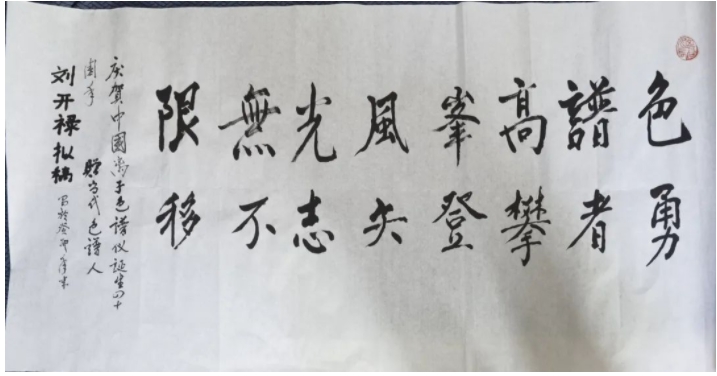 色譜高峯風光無限
勇者攀登矢志不移
庆賀中國离子色谱仪诞生四十
周年
赠当代色譜人
刘开禄拟稿
写於癸卯